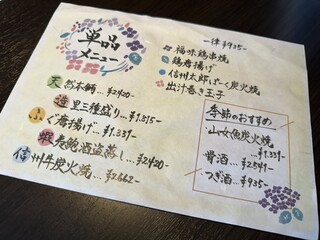 単品
メニュー
天然本鮪…¥2420-
造里三種盛り…¥1,815-
ふぐ唐揚げ…¥1,331-
蝦夷鮑酒盗蒸し…¥2,420-
信州牛炭火焼…¥2,662-
一律¥935-
福味鶏串焼
鶏唐揚げ
信州太郎ぽーく炭火焼
出汁巻き玉子
季節のおすすめ
山女魚炭火焼
…¥1,331-
骨酒…¥2,541-
つぎ酒…¥935-